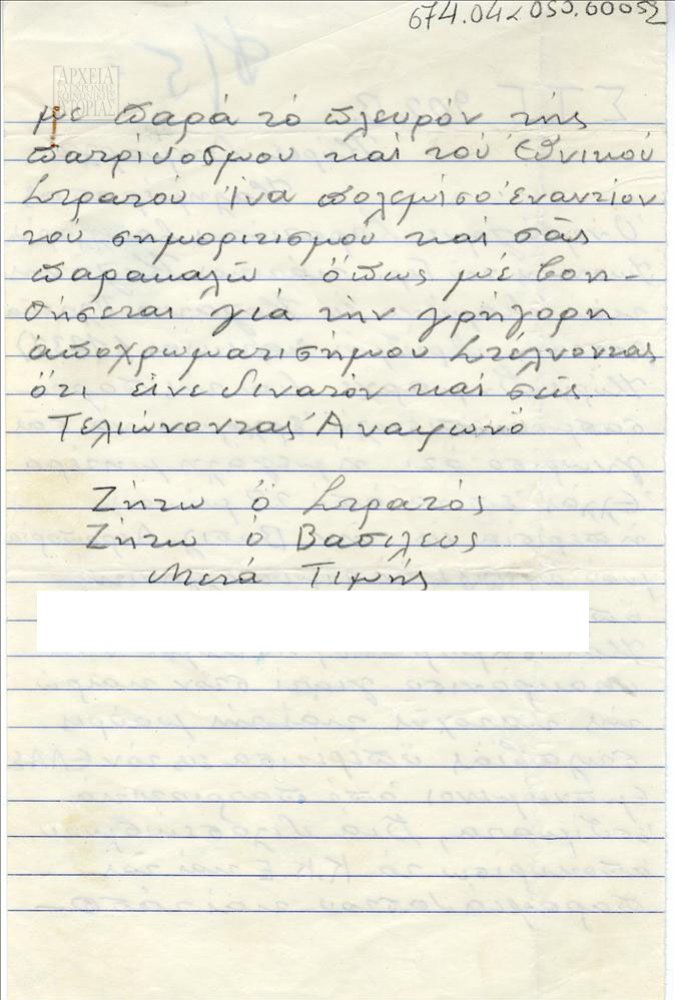 674.042.050.60052
ΑΡΧΕΙΑ
ΣΥΓΧΡΟΝΗΣ
ΚΟΙΝΩΝΙΚΗΣ
ΙΣΤΟΡΙΑΣ
με παρά τό πλευρόν τής
πατριοσμου καί τού Εθνικού
Στρατού ίνα πολεμίσο έναντίον
τού σημοριτισμού καί σάς
παρακαλώ όπως μέ βοη-
θήσεται γιά τήν γρήγορη
άποχρωματισήμου Στέλνοντας
ότι είνε δινατόν καί σείς.
Τελιώνοντας Αναφωνό
Ζήτω ό Στρατός
Ζήτω ό Βασιλευς
Μετά Τιμής